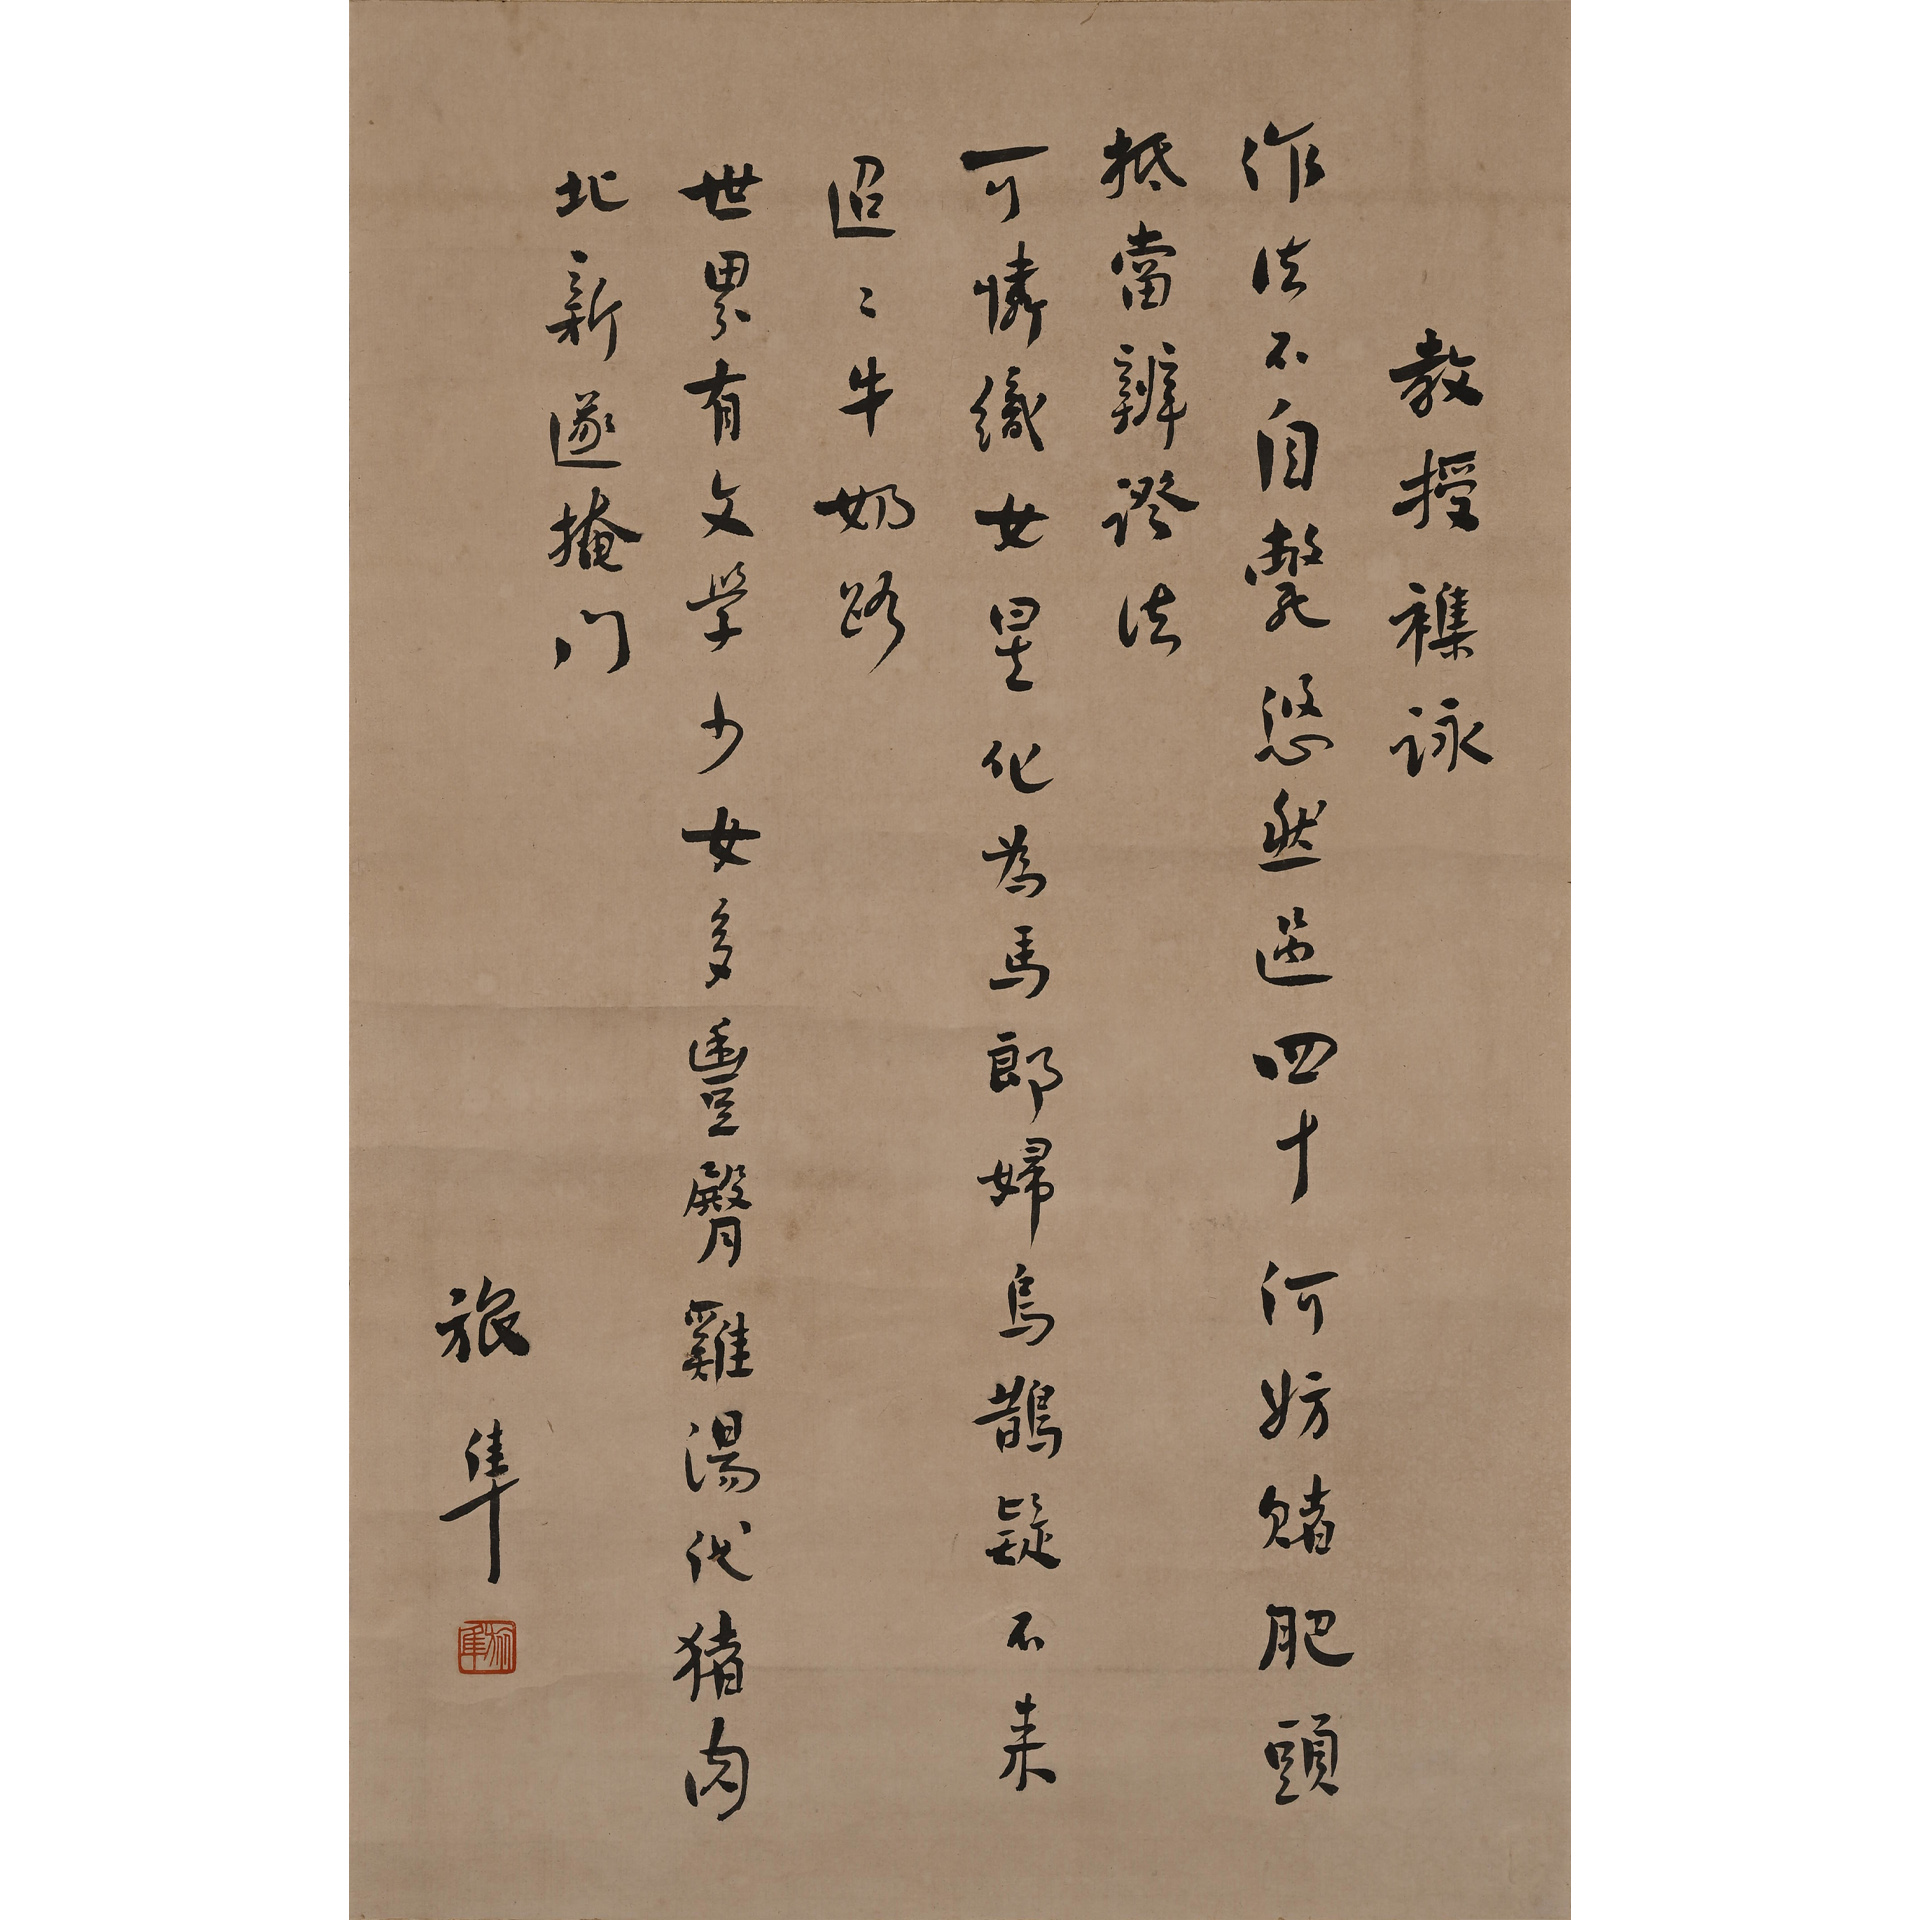 教授襍詠
作法不自斃悠然過四十何妨賭肥頭
抵當辨證法
可憐織女星化為馬郎婦烏鵲疑不来
迢〻牛奶路
世界有文學少女多豐臀雞湯代猪肉
北新遂掩门
旅隼
旅隼